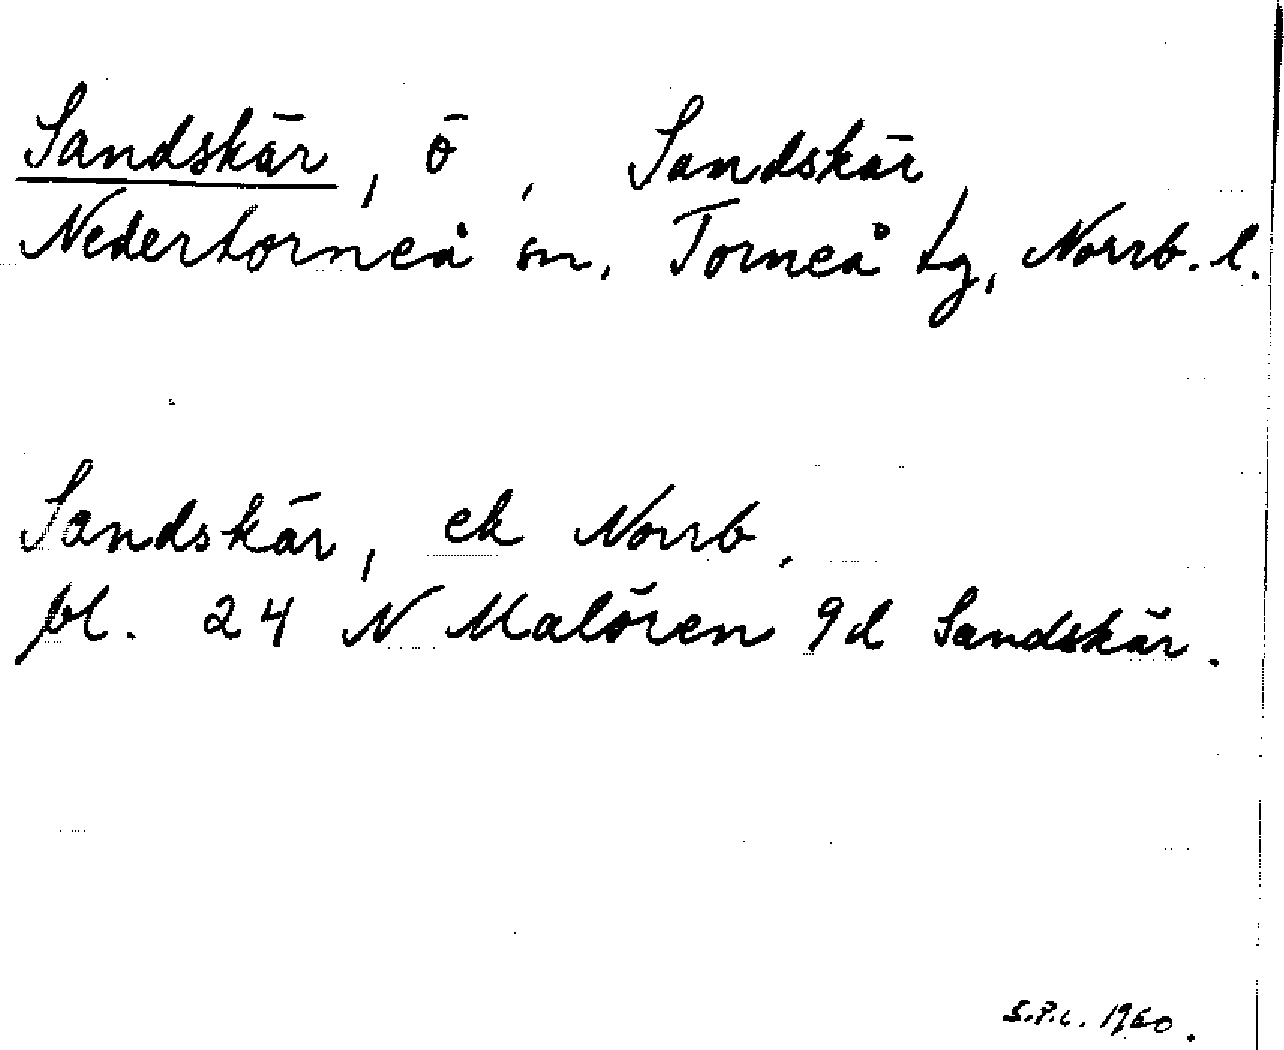 Sandskär, ö, Sandskär,
Nedertorneå sn, Torneå tg, Norrb. l.
Sandskär, ek Norrb,
bl. 24 N Malören 9d Sandskär.
S.P.L. 1960.